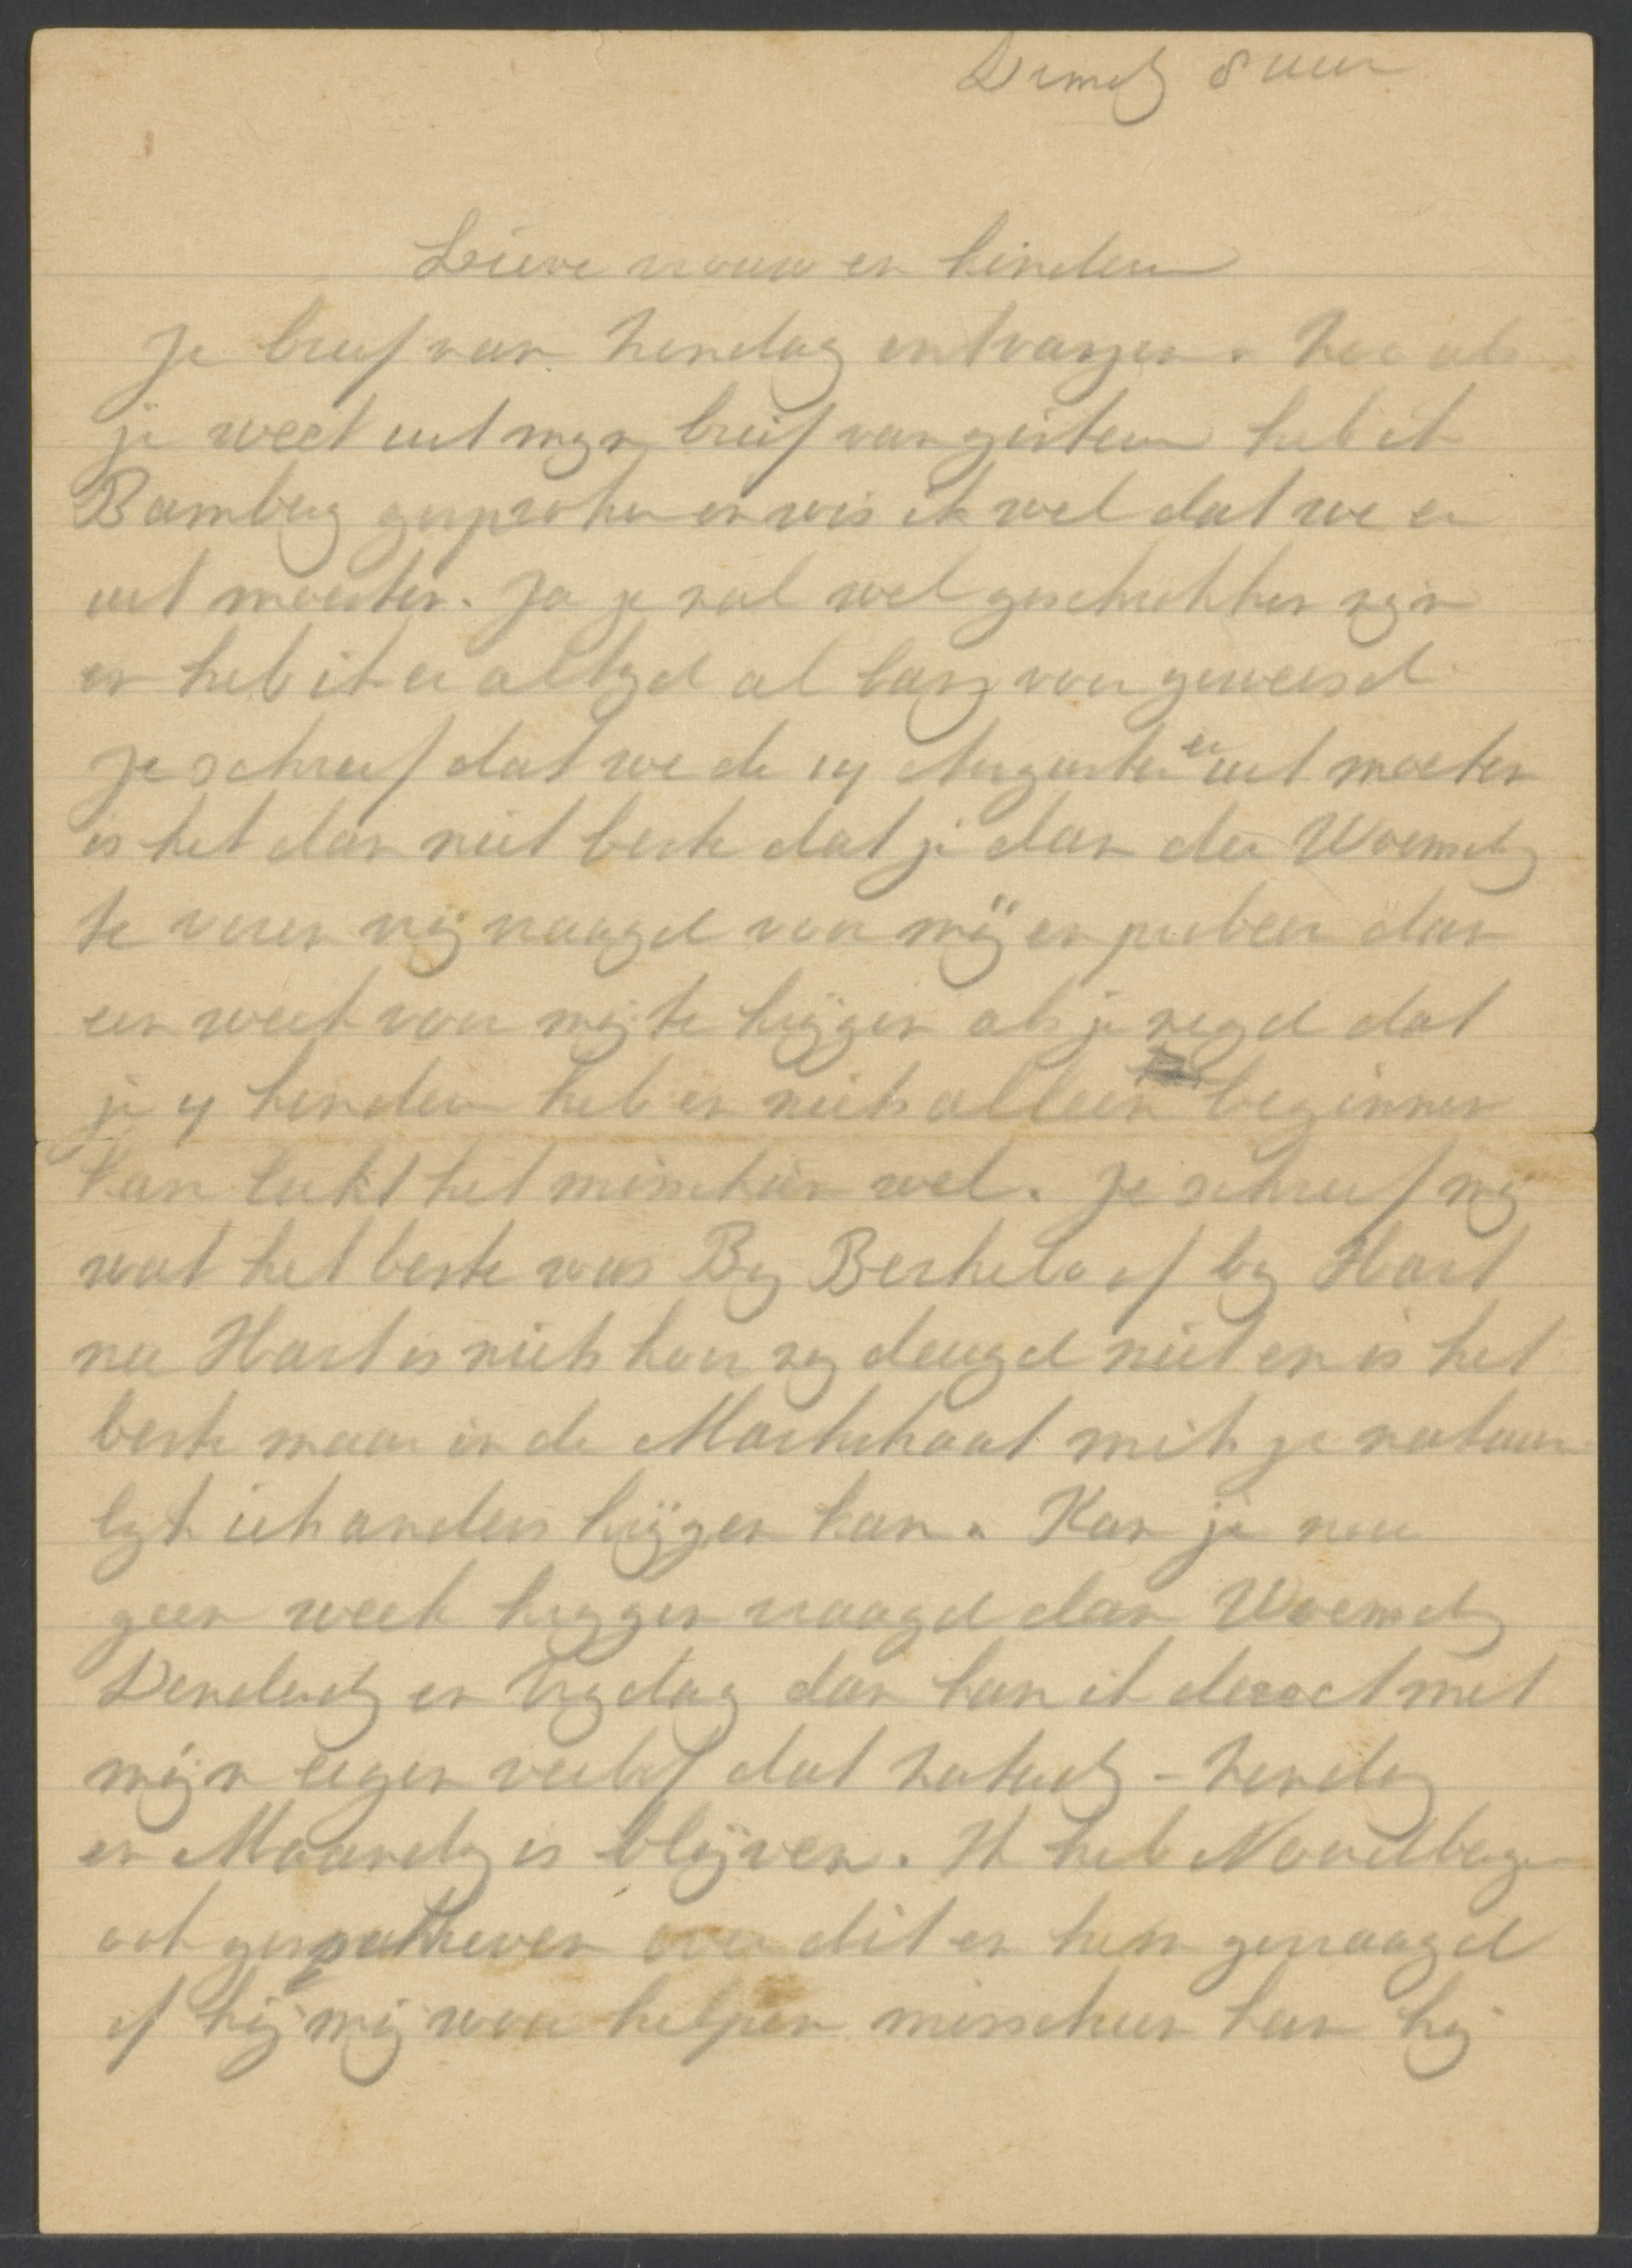 Dinsdg 8 uur
Lieve vrouw en kinderen
Je brief van Zondag ontvangen. Zoo als
je weet uit mijn brief van gisteren heb ik
Bamberg gesproken en wis ik wel dat we er
uit moesten. Ja je zal wel geschrokken zijn
en heb ik er altijd al bang voor geweesd
Je schreef dat we de 14 Augustus er uit moeten
is het dan niet beste dat je dan der Woensdg
te voren vrij vraagd voor mij en probeer dan
een week voor mij te krijgen als je zegd dat
je 4 kinderen heb en niets alleen beginnen
kan lukt het misschien wel. Je schreef mij
wat het beste was Bij Berkelo of bij Hart
nu Hart is niets hoor zij deugd niet en is het
beste maar in de Markstraat mits je natuur
lijk iets anders krijgen kan. Kan je nou
geen week krijgen vraagd dan Woensdg
Donderdg en Vrijdag dan kan ik direct met
mijn eigen verlof dat Zaterdg - Zondag
en Maandg is blijven. Ik heb Noordbergen
ook geschreven over dit en hem gevraagd
of hij mij wou helpen misschien kan hij